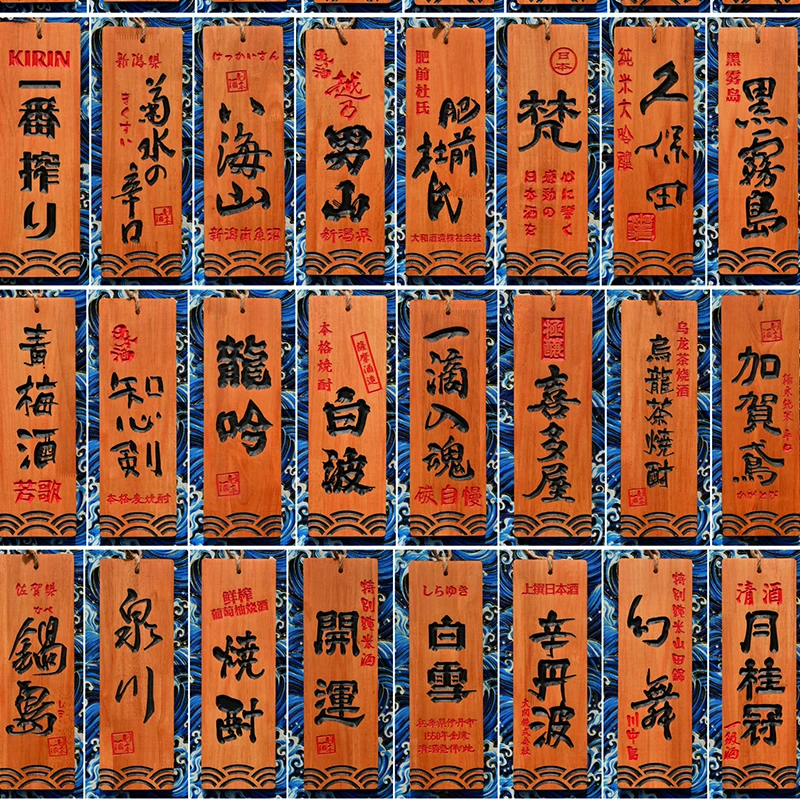 KIRIN
一番搾り
新潟県
きくすい
菊水の
辛口
はっかいさん
八海山
新潟南魚沼
越乃
男山
新潟県
肥前杜氏
肥前
杜氏
大和酒造株式会社
日本
梵
心に響く
感動の
日本酒を
純米大吟醸
久保田
黒霧島
黒霧島
青梅酒
若歌
知心剣
本格麦焼酎
龍吟
本格焼酎
薩摩酒造
白波
一滴入魂
碳自慢
極醸
喜多屋
乌龙茶烧酒
烏龍茶焼酎
加賀鳶
極寒純米 辛口
かがとび
佐賀県
なべ
鍋島
しま
泉川
鮮榨
葡萄柚烧酒
焼酎
特別純米酒
開運
しらゆき
白雪
兵庫県伊丹市
1550年創業
清酒発祥の地
上撰日本酒
辛丹波
大関株式会社
特別純米山田錦
幻舞
川中島
清酒
月桂冠
一級酒